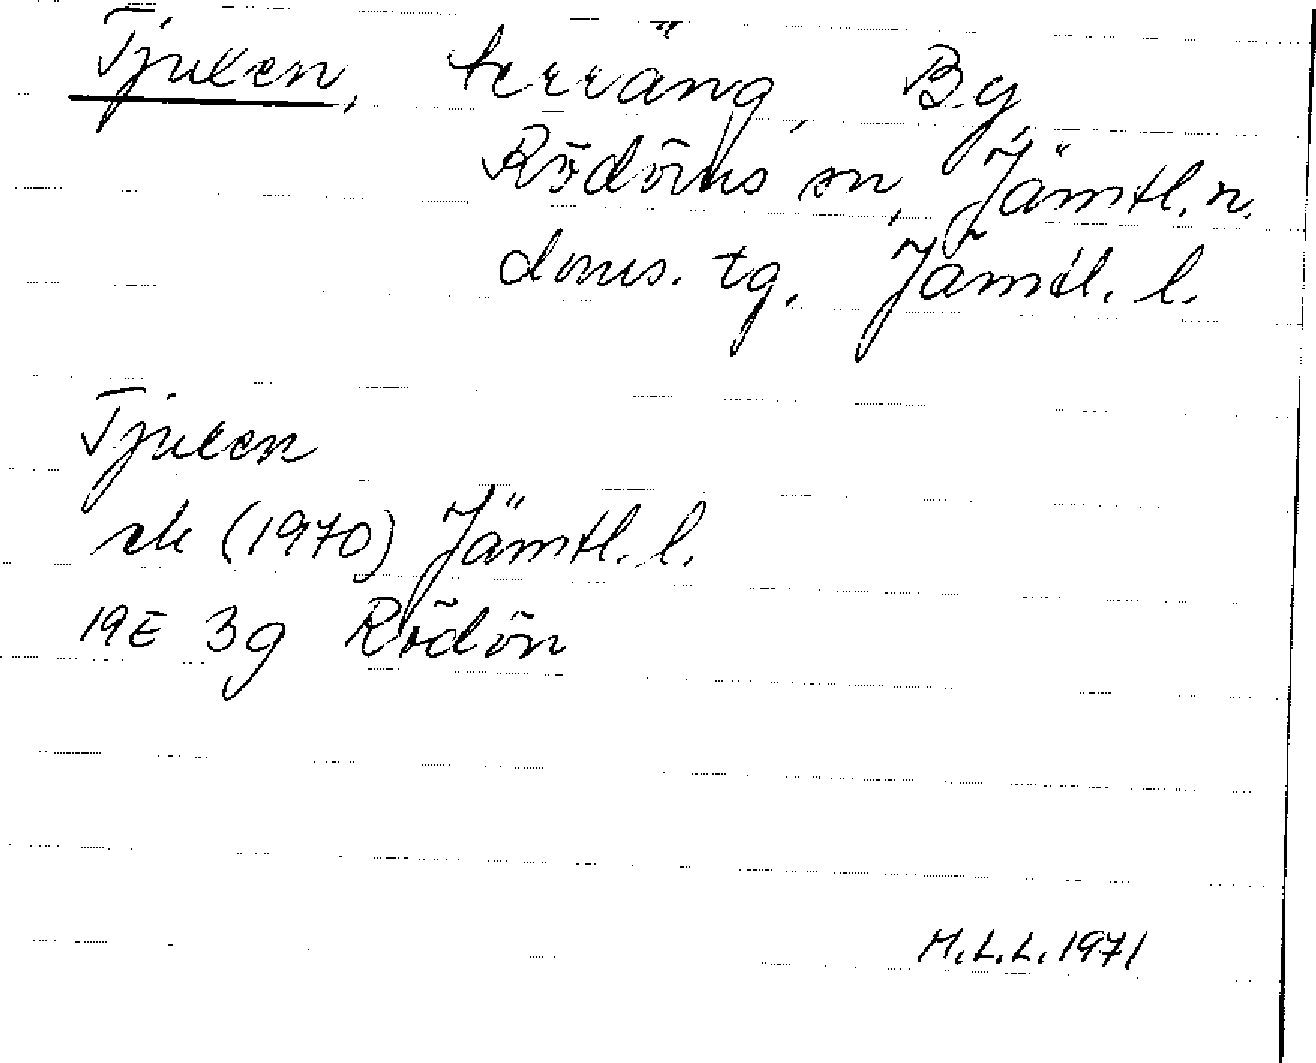 Tjuken, terräng, Bg
Rödöns sn, Jämtl. n.
doms. tg. Jämtl. l.
Tjuken
ek (1970) Jämtl. l.
19E 3g Rödön
M.L.L. 1971